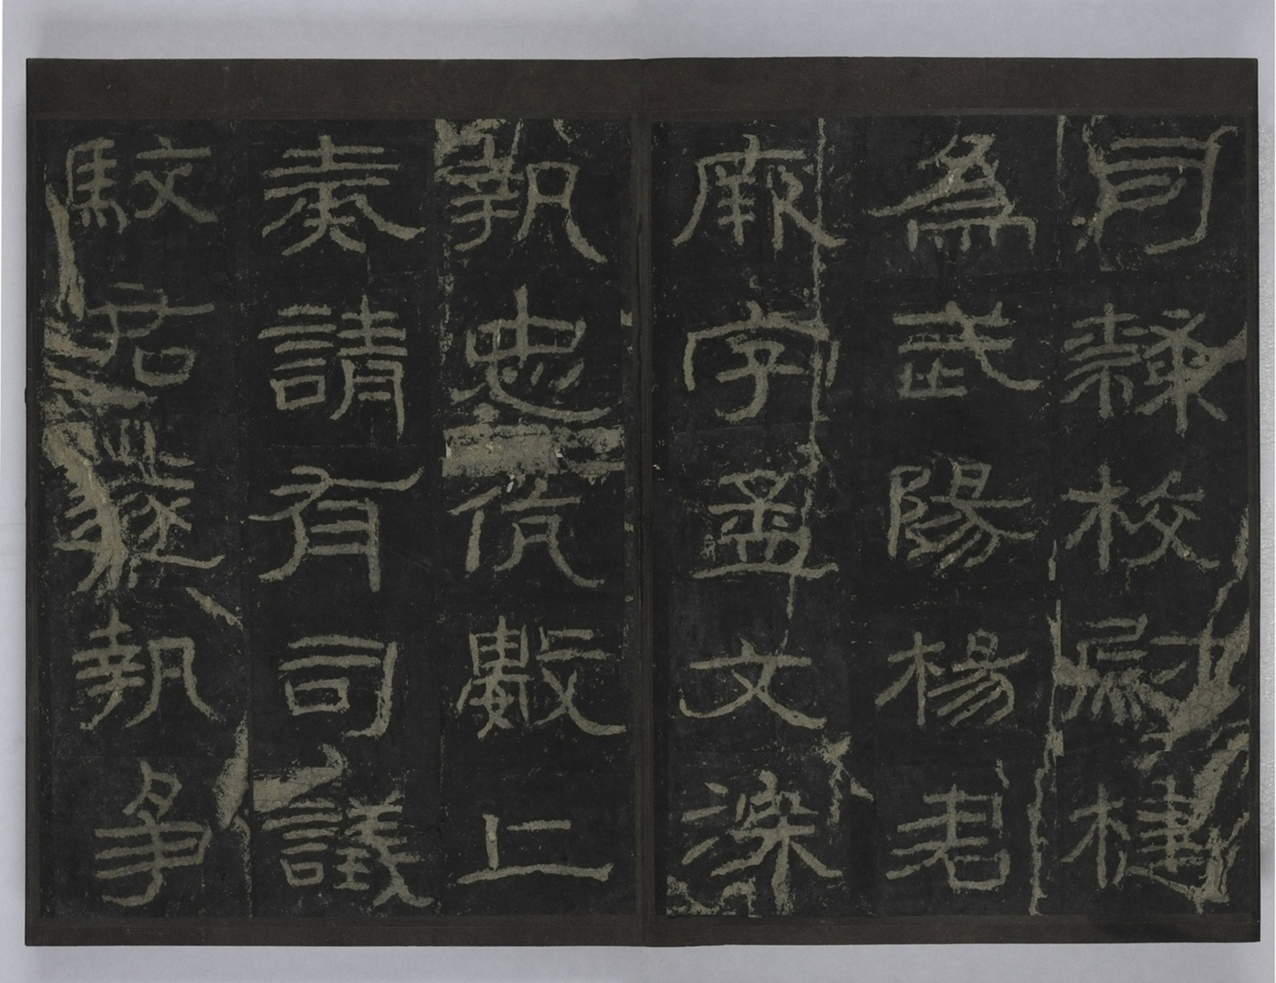 司隸校尉楗
為武陽楊君
厥字孟文深
執忠伉數上
奏請有司議
駮君遂執爭